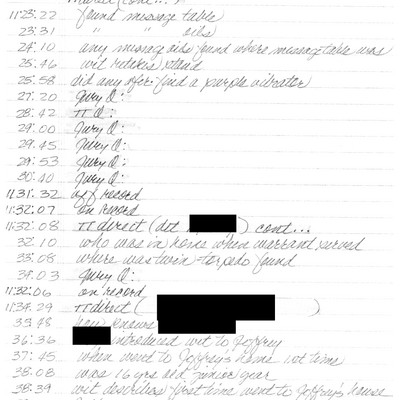 (cont...)
11:23:22 found message table
23:31 " " oils
24:10 any message oils found where message table was
25:46 wit retakes stand
25:58 did any ofcr find a purple vibrator
27:20 Jury Q:
28:42 π Q:
29:00 Jury Q:
29:45 Jury Q:
29:53 Jury Q:
30:40 Jury Q:
11:31:32 off record
11:32:07 on record
11:32:08 π direct (det ) cont...
32:10 who was in home when warrant served
33:08 where was twin torpedo found
34:03 Jury Q:
11:32:06 on record
11:34:29 π direct ( )
35:48 how knows
36:36 introduced wit to Jeffrey
37:45 when went to Jeffrey's home 1st time
38:08 was 16 yrs old junior year
38:39 wit describes first time went to Jeffrey's house